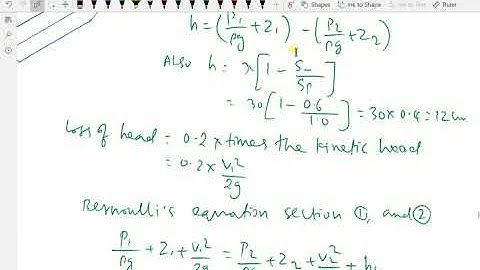 Shapes Ink to Shape Ink to Math Ruler
h = (P₁/ρg + Z₁) − (P₂/ρg + Z₂)
Also h = x[1 − Sm/Sp]
= 30[1 − 0.6/1.0] = 30 x 0.4 = 12 cm
Loss of head = 0.2 x times the kinetic head
= 0.2 x V₁²/2g
Bernoulli's equation section ①, and ②
P₁/ρg + Z₁ + V₁²/2g = P₂/ρg + Z₂ + V₂²/2g + h